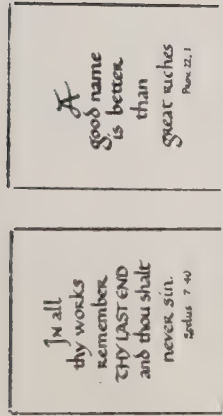 A
good name
is better
than
great riches
Prov. 22. 1
In all
thy works
remember
THY LAST END
and thou shalt
never sin.
Ecclus 7 40